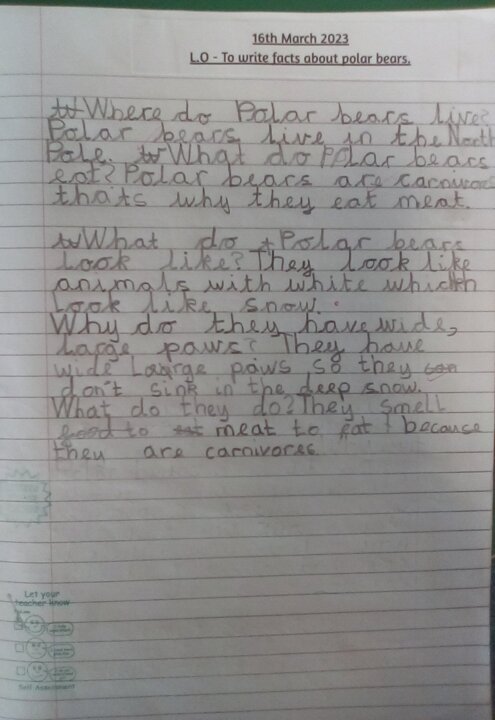 16th March 2023
L.O - To write facts about polar bears.
Where do Polar bears live?
Polar bears live in the North
Pole. What do Polar bears
eat? Polar bears are carnivores
thats why they eat meat.
What do Polar bears
Look like? They look like
animals with white which
Look like snow.
Why do they have wide,
Large paws? They have
wide Large paws so they
don't sink in the deep snow.
What do they do? They smell
to meat to eat because
they are carnivores
Let your
teacher know
Self Assessment